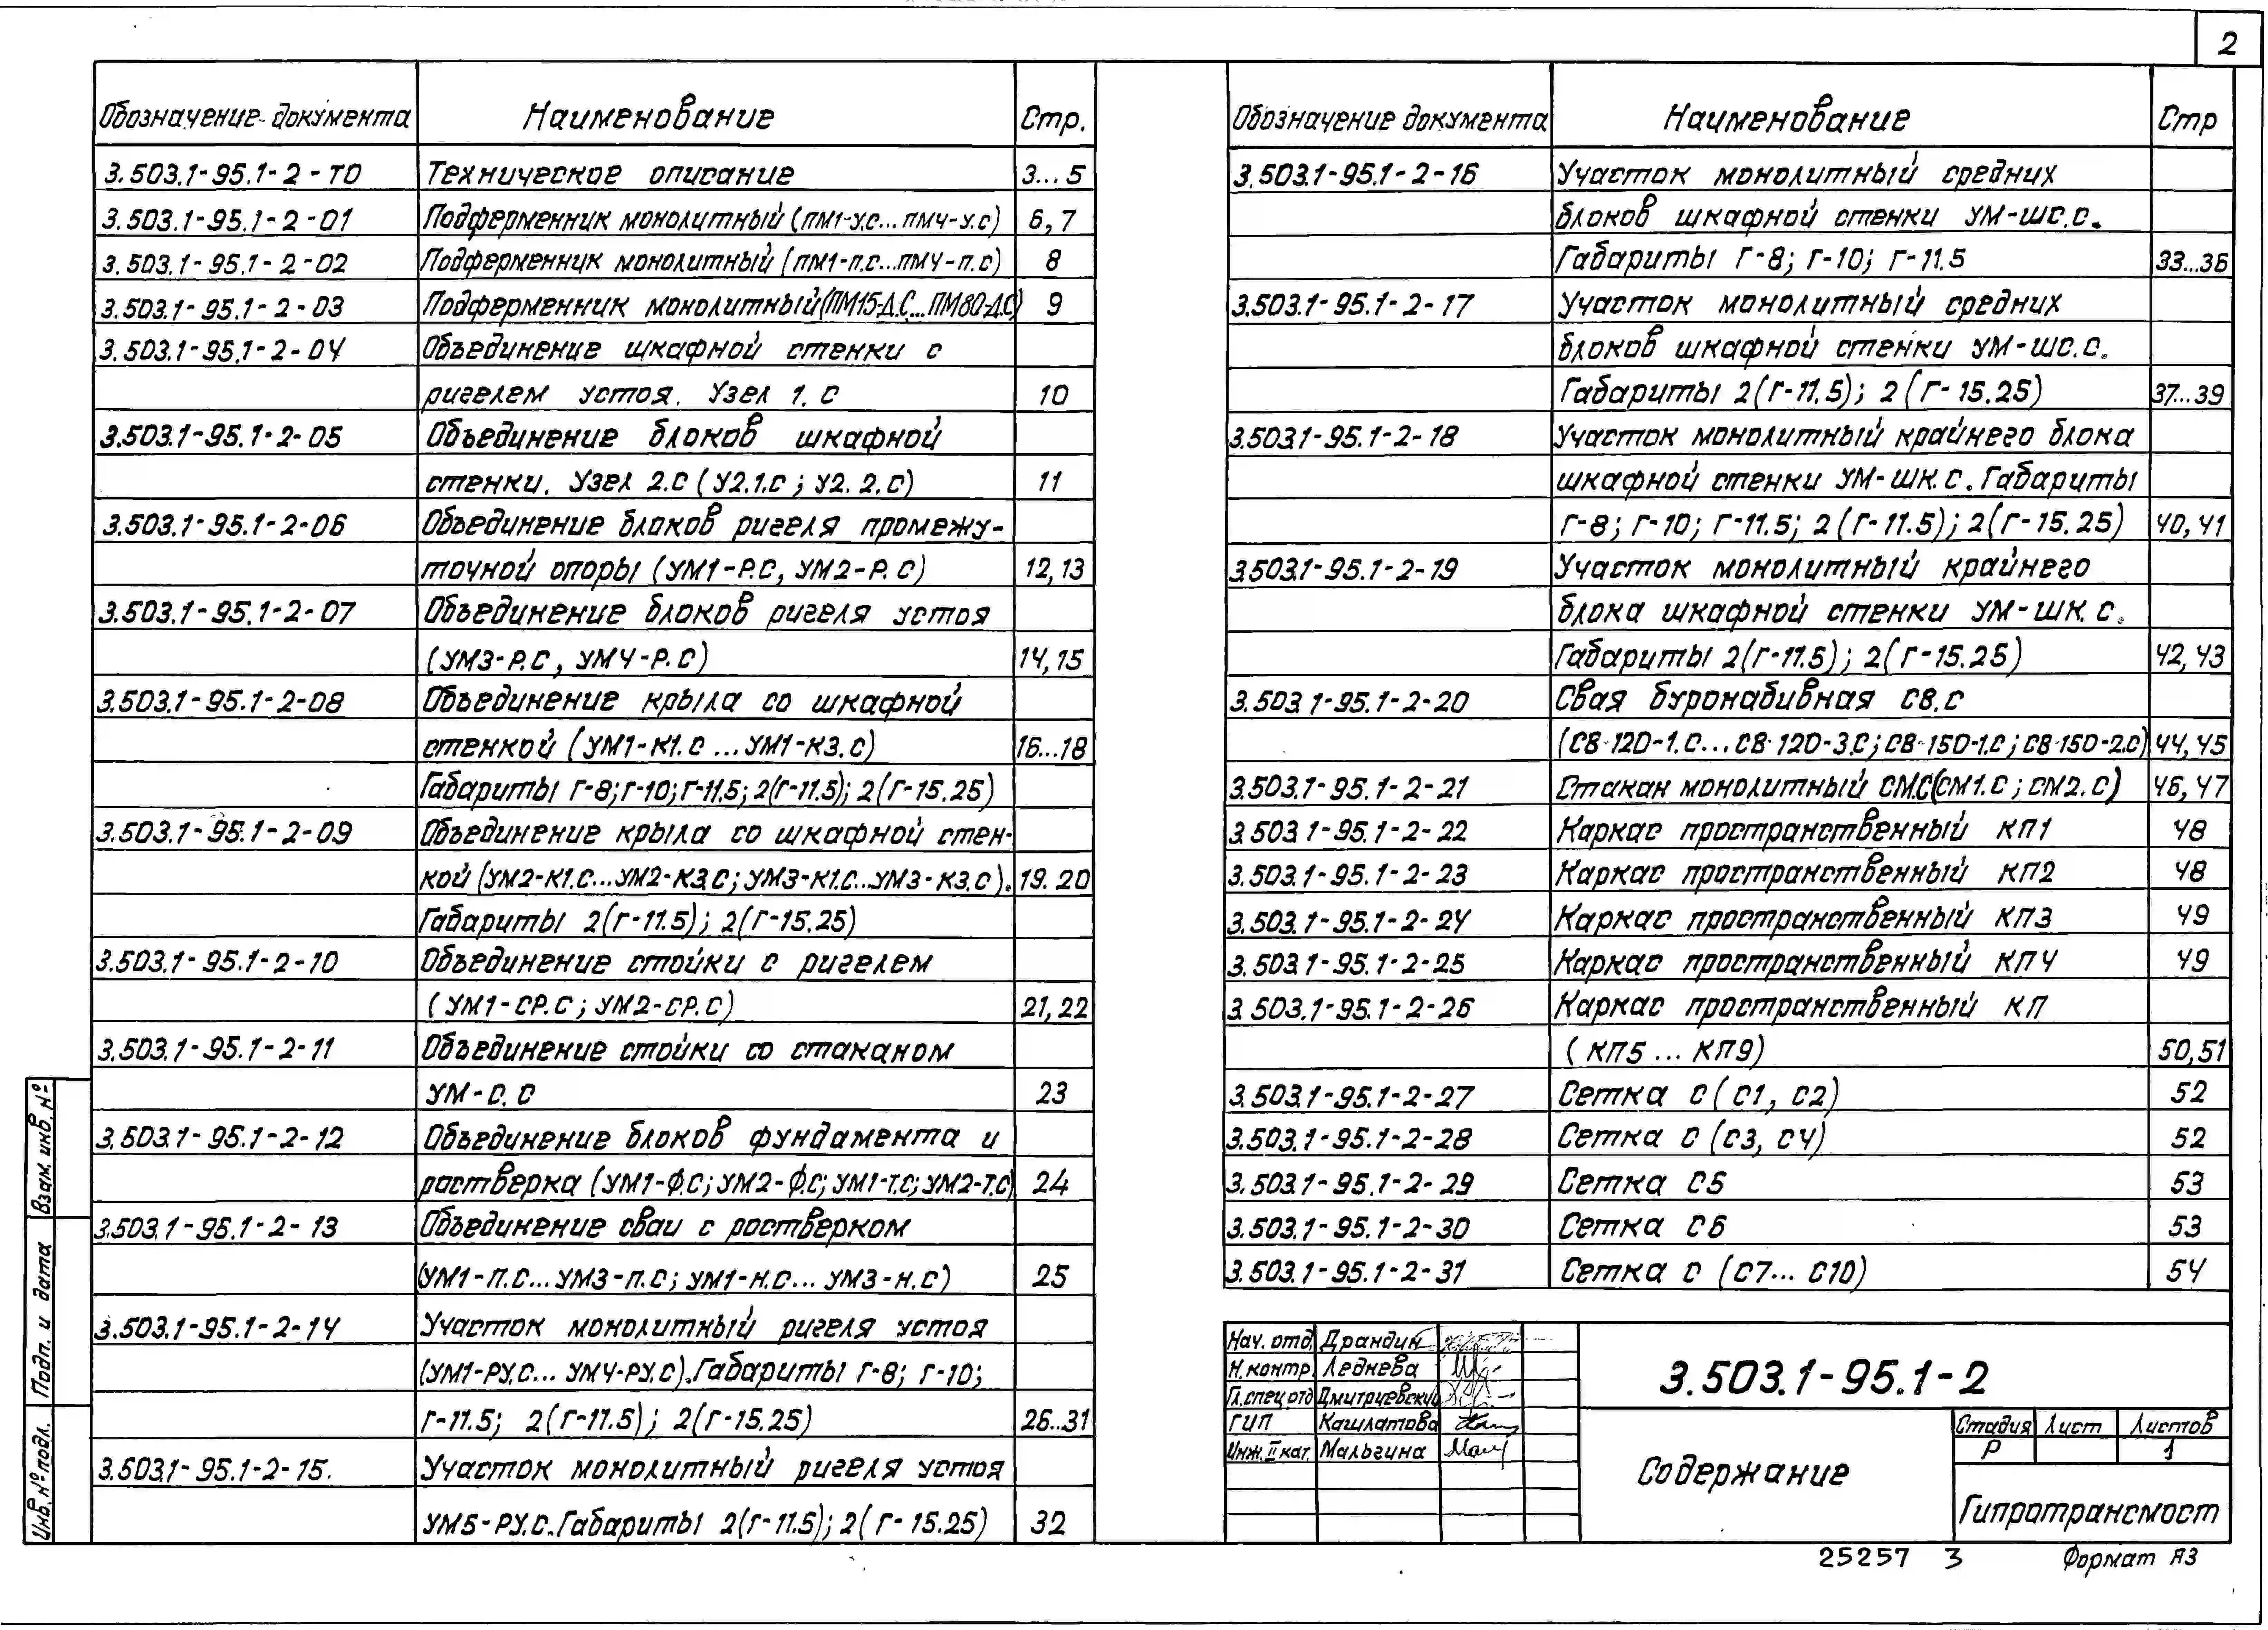 2
Обозначение документа Наименование Стр.
3.503.1-95.1-2-ТО Техническое описание 3...5
3.503.1-95.1-2-01 Подферменник монолитный (ПМ1-У.С...ПМ4-У.С) 6,7
3.503.1-95.1-2-02 Подферменник монолитный (ПМ1-П.С...ПМ4-П.С) 8
3.503.1-95.1-2-03 Подферменник монолитный (ПМ15-Д.С...ПМ80-Д.С) 9
3.503.1-95.1-2-04 Объединение шкафной стенки с
ригелем устоя. Узел 1.С 10
3.503.1-95.1-2-05 Объединение блоков шкафной
стенки. Узел 2.С (У2.1.С; У2.2.С) 11
3.503.1-95.1-2-06 Объединение блоков ригеля промежу-
точной опоры (УМ1-Р.С, УМ2-Р.С) 12,13
3.503.1-95.1-2-07 Объединение блоков ригеля устоя
(УМ3-Р.С, УМ4-Р.С) 14,15
3.503.1-95.1-2-08 Объединение крыла со шкафной
стенкой (УМ1-К1.С...УМ1-К3.С) 16...18
Габариты Г-8; Г-10; Г-11.5; 2(Г-11.5); 2(Г-15.25)
3.503.1-95.1-2-09 Объединение крыла со шкафной стен-
кой (УМ2-К1.С...УМ2-К3.С; УМ3-К1.С...УМ3-К3.С). 19.20
Габариты 2(Г-11.5); 2(Г-15.25)
3.503.1-95.1-2-10 Объединение стойки с ригелем
(УМ1-СР.С; УМ2-СР.С) 21,22
3.503.1-95.1-2-11 Объединение стойки со стаканом
УМ-С.С 23
3.503.1-95.1-2-12 Объединение блоков фундамента и
раствёрка (УМ1-Ф.С; УМ2-Ф.С; УМ1-Т.С; УМ2-Т.С) 24
3.503.1-95.1-2-13 Объединение сваи с ростверком
(УМ1-П.С...УМ3-П.С; УМ1-Н.С...УМ3-Н.С) 25
3.503.1-95.1-2-14 Участок монолитный ригеля устоя
(УМ1-РУ.С...УМ4-РУ.С). Габариты Г-8; Г-10;
Г-11.5; 2(Г-11.5); 2(Г-15.25) 26..31
3.503.1-95.1-2-15. Участок монолитный ригеля устоя
УМ5-РУ.С. Габариты 2(Г-11.5); 2(Г-15.25) 32
Обозначение документа Наименование Стр
3.503.1-95.1-2-16 Участок монолитный средних
блоков шкафной стенки УМ-ШС.С.
Габариты Г-8; Г-10; Г-11.5 33...36
3.503.1-95.1-2-17 Участок монолитный средних
блоков шкафной стенки УМ-ШС.С.
Габариты 2(Г-11.5); 2(Г-15.25) 37...39
3.503.1-95.1-2-18 Участок монолитный крайнего блока
шкафной стенки УМ-ШК.С. Габариты
Г-8; Г-10; Г-11.5; 2(Г-11.5); 2(Г-15.25) 40,41
3.503.1-95.1-2-19 Участок монолитный крайнего
блока шкафной стенки УМ-ШК.С.
Габариты 2(Г-11.5); 2(Г-15.25) 42,43
3.503.1-95.1-2-20 Свая буронабивная СВ.С
(СВ-120-1.С...СВ-120-3.С; СВ-150-1.С; СВ-150-2.С) 44,45
3.503.1-95.1-2-21 Стакан монолитный СМ.С (СМ1.С; СМ2.С) 46,47
3.503.1-95.1-2-22 Каркас пространственный КП1 48
3.503.1-95.1-2-23 Каркас пространственный КП2 48
3.503.1-95.1-2-24 Каркас пространственный КП3 49
3.503.1-95.1-2-25 Каркас пространственный КП4 49
3.503.1-95.1-2-26 Каркас пространственный КП
(КП5...КП9) 50,51
3.503.1-95.1-2-27 Сетка С (С1, С2) 52
3.503.1-95.1-2-28 Сетка С (С3, С4) 52
3.503.1-95.1-2-29 Сетка С5 53
3.503.1-95.1-2-30 Сетка С6 53
3.503.1-95.1-2-31 Сетка С (С7...С10) 54
Нач. отд. Драндин
Н.контр. Леднева
Гл.спец отд Дмитриевский
ГИП Кашлатова
Инж. II кат. Мальгина
3.503.1-95.1-2
Содержание
Стадия Лист Листов
Р 1
Гипротрансмост
Взам. инв. №
Подп. и дата
Инв. № подл.
25257 3 Формат А3